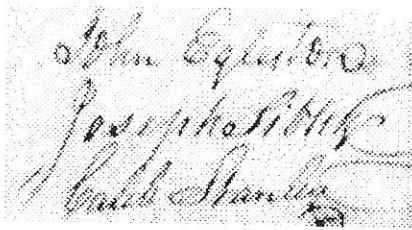 John Egleston
Joseph
Caleb Stanley